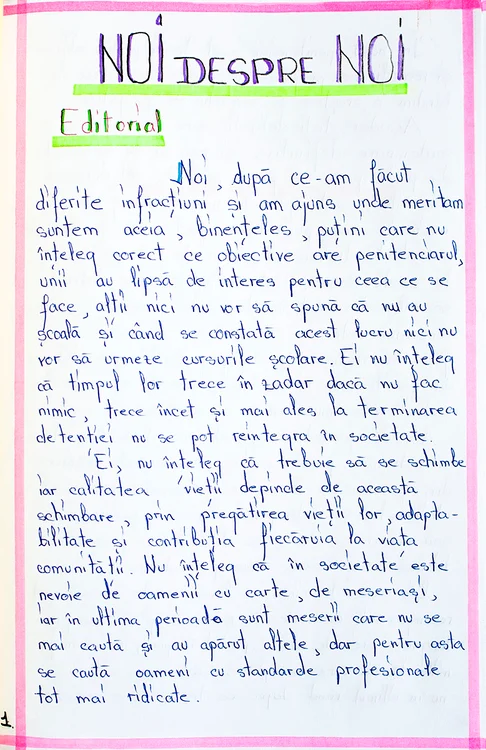 NOI DESPRE NOI
Editorial
Noi, după ce-am făcut
diferite infracțiuni și am ajuns unde meritam
suntem aceia, bineînțeles, puțini care nu
înțeleg corect ce obiective are penitenciarul,
unii au lipsă de interes pentru ceea ce se
face, alții nici nu vor să spună că nu au
școală și când se constată acest lucru nici nu
vor să urmeze cursurile școlare. Ei nu înțeleg
că timpul lor trece în zadar dacă nu fac
nimic, trece încet și mai ales la terminarea
detenției nu se pot reintegra în societate.
Ei, nu înteleg că trebuie să se schimbe
iar calitatea vieții depinde de această
schimbare, prin pregătirea vieții lor, adapta-
bilitate și contribuția fiecăruia la viața
comunității. Nu înțeleg că în societate este
nevoie de oamenii cu carte, de meseriași,
iar în ultima perioadă sunt meserii care nu se
mai caută și au apărut altele, dar pentru asta
se caută oameni cu standarde profesionale
tot mai ridicate.
1.